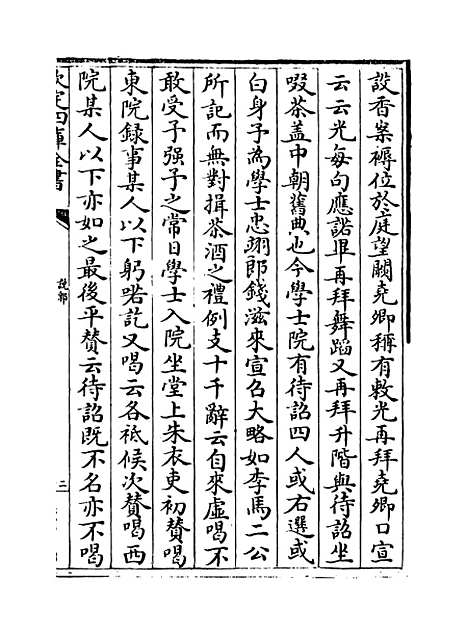 設香案褥位於庭望闕堯卿稱有敕光再拜堯卿口宣
云云光每句應諾畢再拜舞蹈又再拜升階與待詔坐
啜茶蓋中朝舊典也今學士院有待詔四人或右選或
白身予為學士忠翊郎錢滋來宣召大略如李馬二公
所記而無對揖茶酒之禮例支十千辭云自來虛喝不
敢受予强予之常日學士入院坐堂上朱衣吏初賛喝
東院録事某人以下躬喏訖又喝云各祗候次賛喝西
院某人以下亦如之最後平賛云待詔既不名亦不喝
欽定四庫全書
說郛